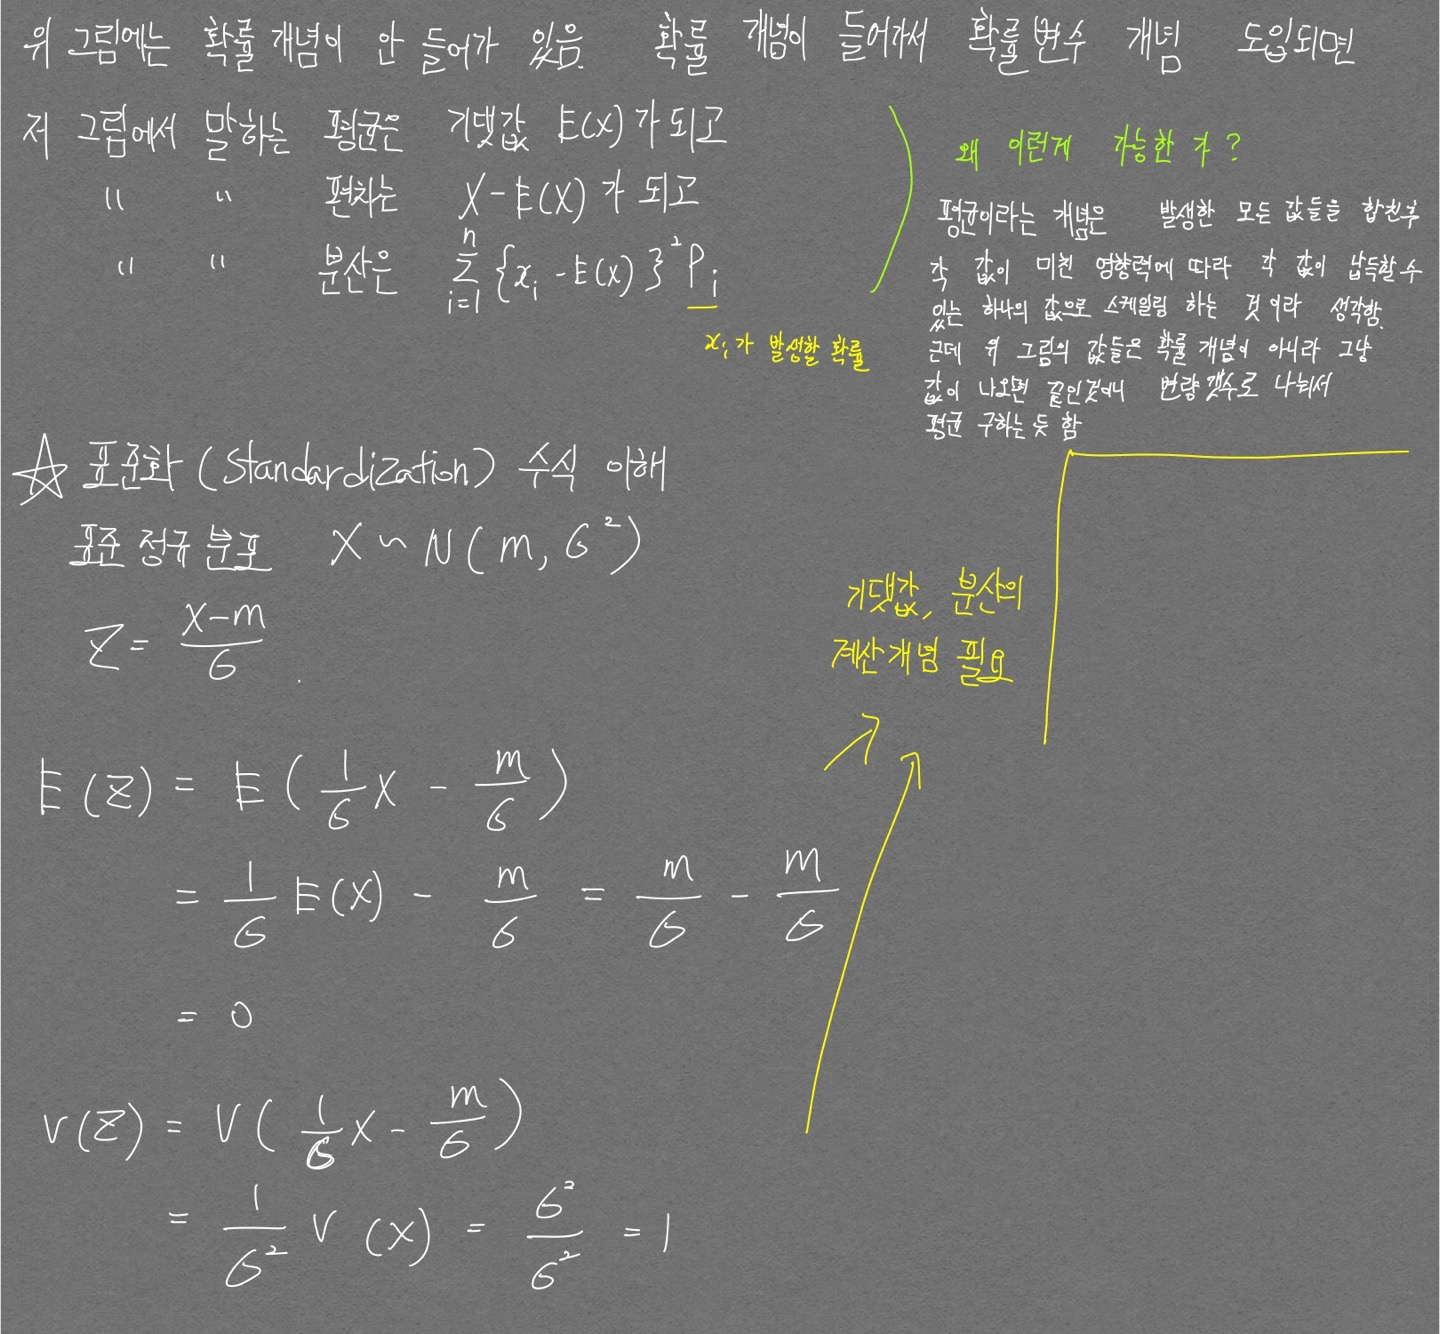 위 그림에는 확률 개념이 안 들어가 있음. 확률 개념이 들어가서 확률변수 개념 도입되면
저 그림에서 말하는 평균은 기댓값 E(X)가 되고
〃 〃 편차는 X-E(X)가 되고
〃 〃 분산은 n Σ i=1 {xᵢ-E(X)}² Pᵢ
xᵢ가 발생할 확률
왜 이런게 가능한가?
평균이라는 개념은 발생한 모든 값들을 합친후
각 값이 미친 영향력에 따라 각 값이 납득할수
있는 하나의 값으로 스케일링 하는 것이라 생각함.
근데 위 그림의 값들은 확률 개념이 아니라 그냥
값이 나오면 끝인것이니 변량 갯수로 나눠서
평균 구하는 듯 함
☆ 표준화 (Standardization) 수식 이해
표준 정규 분포 X ~ N(m, σ²)
Z = (X-m)/σ
기댓값, 분산의
계산개념 필요
E(Z) = E(1/σ X - m/σ)
= 1/σ E(X) - m/σ = m/σ - m/σ
= 0
V(Z) = V(1/σ X - m/σ)
= 1/σ² V(X) = σ²/σ² = 1